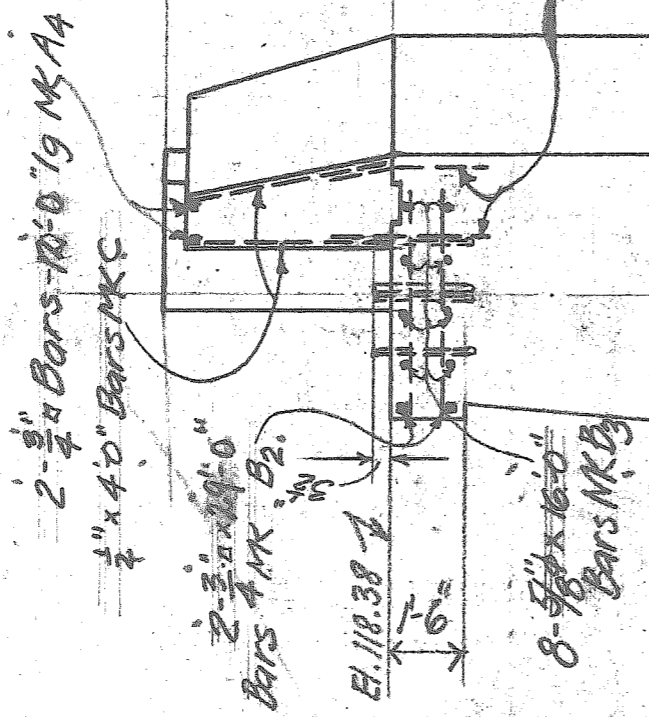 2-3/4"⌑ Bars- -0" lg MK A4
1/2" x 4'0" Bars MK C
2-3/4"⌑ x -0"
Bars MK B2.
3 1/2"
El. 118.38
1'-6"
8-5/8"ϕ x 16'-0"
Bars MK B3